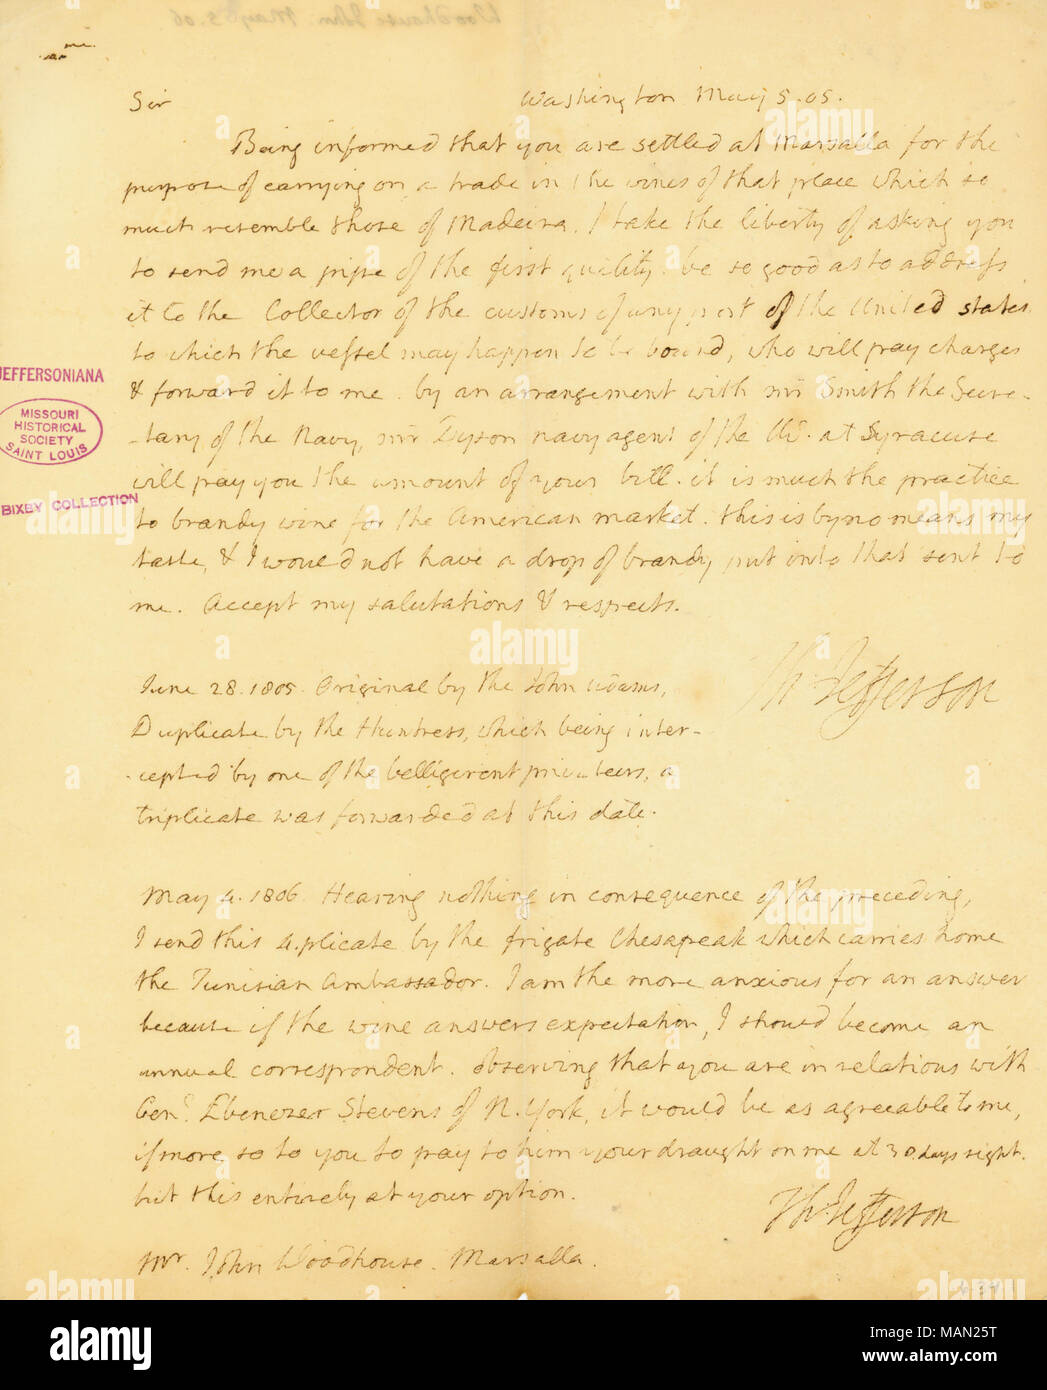 Washington May 5. 05.
Sir
Being informed that you are settled at Marsalla for the
purpose of carrying on a trade in the wines of that place which so
much resemble those of Madeira, I take the liberty of asking you
to send me a pipe of the first quility. be so good as to address
it to the Collector of the customs of any port of the United states
to which the vessel may happen to be bound, who will pay charges
& forward it to me. by an arrangement with mr Smith the Secre-
-tary of the Navy, mr Dyson navy agent of the US. at Syracuse
will pay you the amount of your bill. it is much the practice
to brandy wine for the American market. this is by no means my
taste, & I would not have a drop of brandy put into that sent to
me. Accept my salutations & respects.
Th Jefferson
June 28. 1805. Original by the John Adams,
Duplicate by the Huntress, which being inter-
-cepted by one of the belligerent privateers, a
triplicate was forwarded at this date.
May 4. 1806. Hearing nothing in consequence of the preceding,
I send this 4.plicate by the frigate Chesapeak which carries home
the Tunisian Ambassador. I am the more anxious for an answer
because if the wine answers expectation, I should become an
annual correspondent. observing that you are in relations with
Genl. Ebenezer Stevens of N. York, it would be as agreeable to me,
if more so to you to pay to him your draught on me at 30. days sight.
but this entirely at your option.
Th: Jefferson
Mr. John Woodhouse. Marsalla.
JEFFERSONIANA
MISSOURI
HISTORICAL
SOCIETY
SAINT LOUIS
BIXBY COLLECTION
alamy
Image ID: MAN25T
www.alamy.com